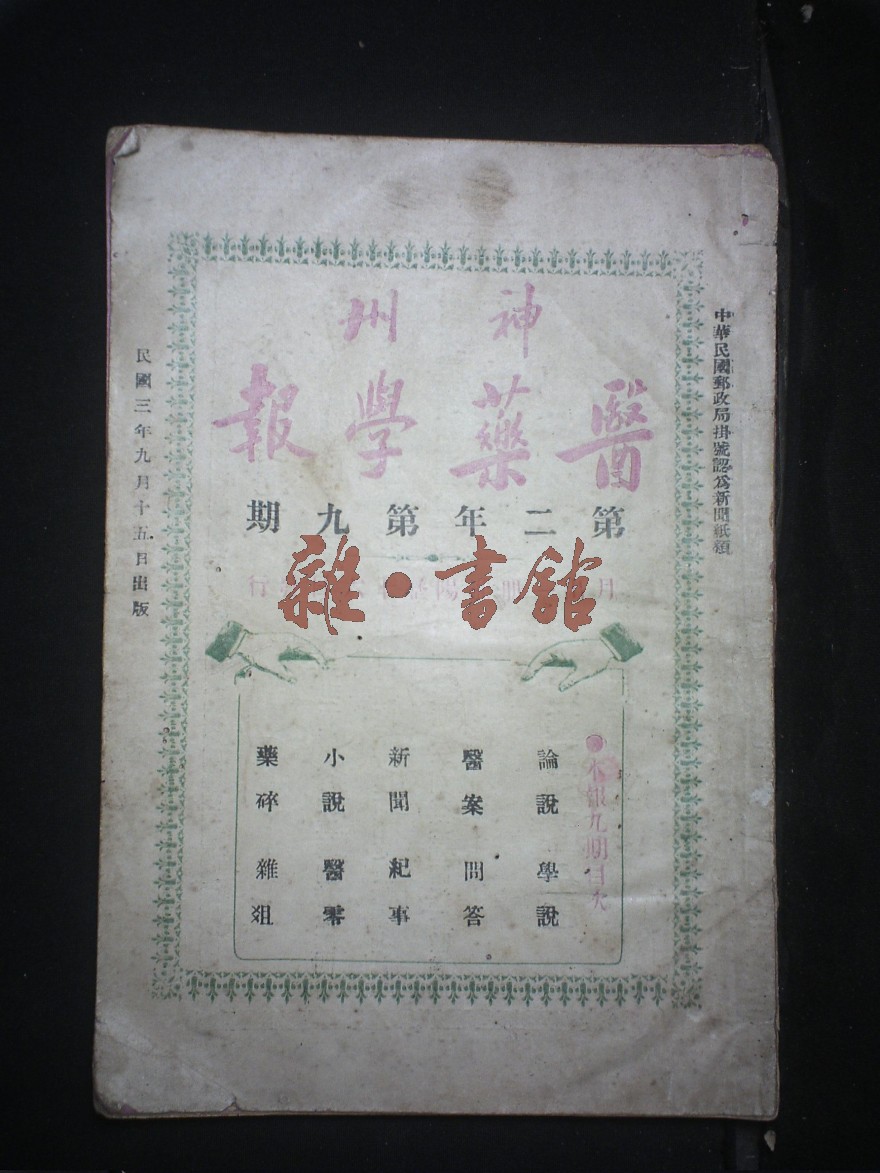 中華民國郵政局掛號認爲新聞紙類
神州
醫藥學報
第二年第九期
雜·書館
本報九期目次
論說 學說
醫案 問答
新聞 紀事
小說 醫零
藥碎 雜俎
民國三年九月十五日出版